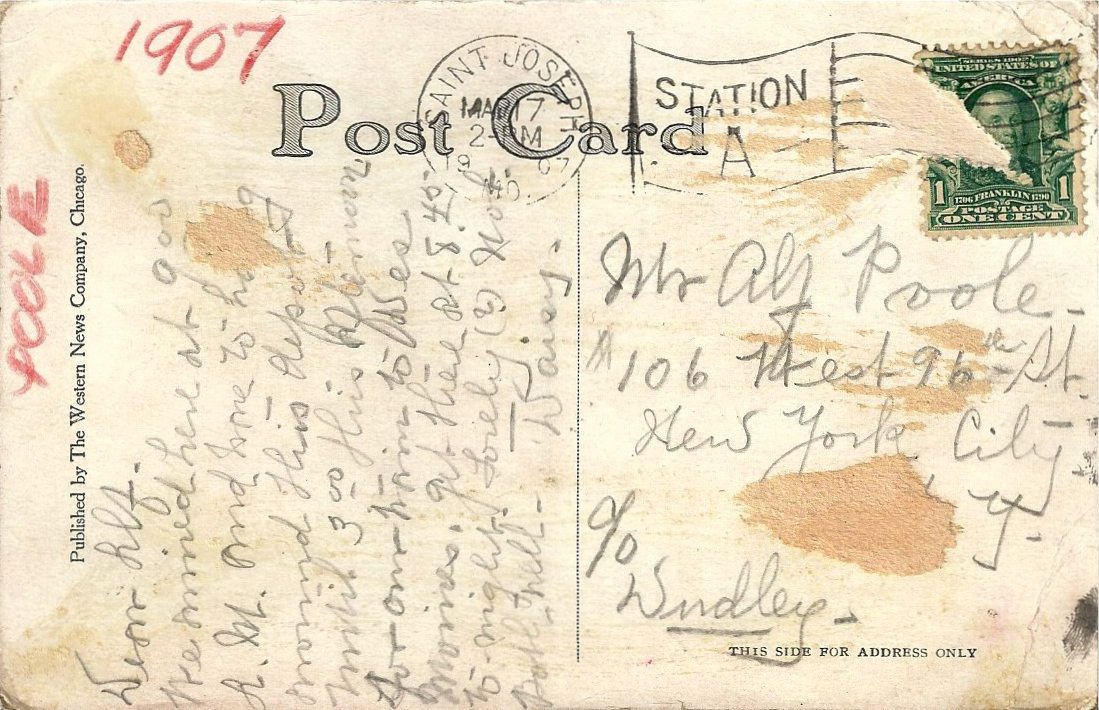 1907
POOLE
Post Card
SAINT JOSEPH
MAR 17
2-PM
1907
MO.
STATION
A
SERIES 1902
UNITED STATES OF
1 1
1706 FRANKLIN 1790
POSTAGE
ONE CENT
Published by The Western News Company, Chicago.
Dear Alf-
We arrived here at 9 00
A.M. and have to hang
around this depot
until 3 00 this afternoon
for our train to Des
Moines, get there at 8 45
to-night. Lovely (?)
Well-
Mr Alf Poole-
# 106 West 96th St.
New York City
Y.
c/o
Dudley-
THIS SIDE FOR ADDRESS ONLY